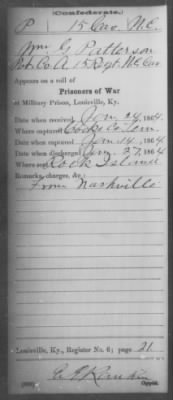 (Confederate.)
P 15 Cav. N.C.
Wm G. Patterson
Pvt. Co. A 15 Regt. N.C. Cav.
Appears on a roll of
Prisoners of War
at Military Prison, Louisville, Ky.
Date when received Jan 24, 1864.
Where captured Cocke Co. Tenn.
Date when captured Jan. 14, 1864
Date when discharged Jan. 27, 1864
Where sent Rock Island
Remarks, charges, &c.:
From Nashville
Louisville, Ky., Register No. 6; page 21
Copyist.